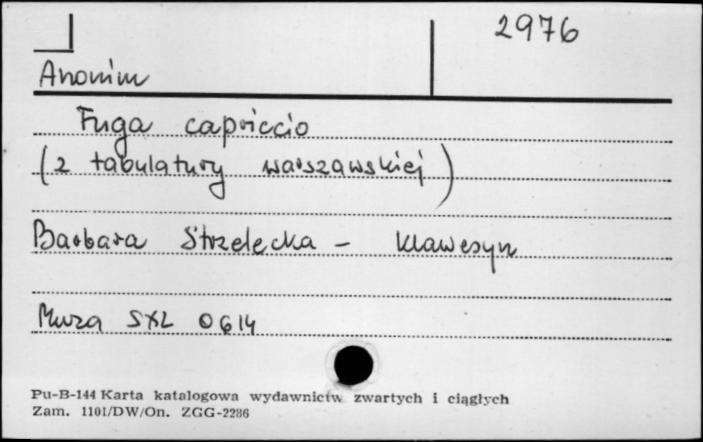 2976
Anonim
Fuga capriccio
(z tabulatury warszawskiej)
Barbara Strzelecka - klawesyn
Muza SXL 0614
Pu-B-144 Karta katalogowa wydawnictw zwartych i ciągłych
Zam. 1101/DW/On. ZGG-2286